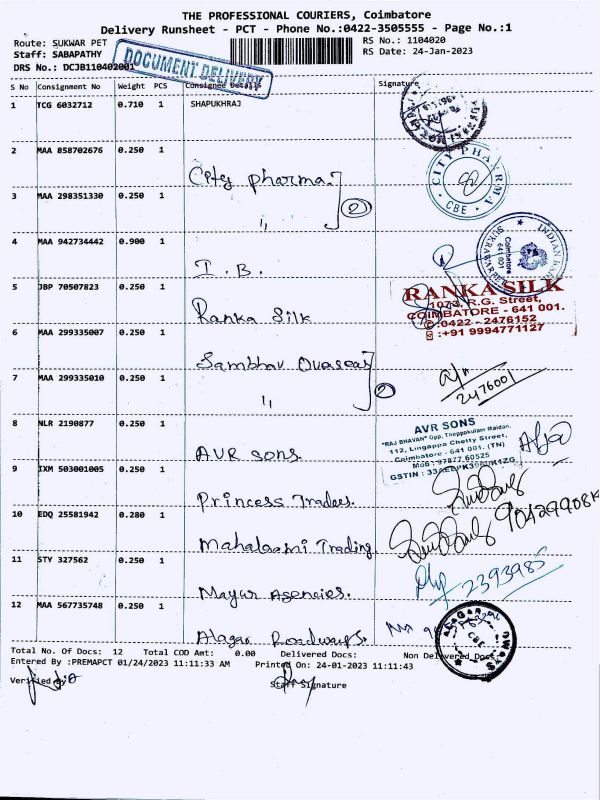 THE PROFESSIONAL COURIERS, Coimbatore
Delivery Runsheet - PCT - Phone No.:0422-3505555 - Page No.:1
Route: SUKWAR PET
RS No.: 1104020
Staff: SABAPATHY
RS Date: 24-Jan-2023
DRS No.: DCJB110402001
DOCUMENT DELIVERY
S No Consignment No Weight PCS Consignee Details Signature
1 TCG 6032712 0.710 1 SHAPUKHRAJ
2 MAA 858702676 0.250 1 City Pharma.
CITY PHARMA
CBE
3 MAA 298351330 0.250 1 " 2
4 MAA 942734442 0.900 1 I.B.
INDIAN BANK
Coimbatore
641 001
5 JBP 70507823 0.250 1 Ranka Silk
RANKA SILK
1073, R.G. Street,
COIMBATORE - 641 001.
:0422 - 2476152
:+91 9994771127
6 MAA 299335007 0.250 1 Sambhav Ovaseas
7 MAA 299335010 0.250 1 " 2
2476001
8 NLR 2190877 0.250 1 AVR Sons.
AVR SONS
"RAJ BHAVAN" Opp. Theppakulam Maidan,
112, Lingappa Chetty Street,
Coimbatore - 641 001. (TN)
Mob : 97877 60525
GSTIN :
9 IXM 503001005 0.250 1 Princess Traders.
10 EDQ 25581942 0.280 1 Mahalaxmi Trading
11 STY 327562 0.250 1 Mayur Agencies.
2393985
12 MAA 567735748 0.250 1 Alagar Roadways.
CBE
Total No. Of Docs: 12 Total COD Amt: 0.00 Delivered Docs: Non Delivered Docs:
Entered By :PREMAPCT 01/24/2023 11:11:33 AM Printed On: 24-01-2023 11:11:43
Verified By Staff Signature